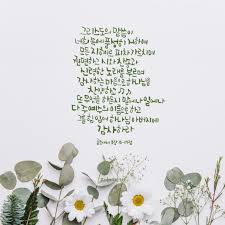 그리스도의 말씀이
너희 속에 풍성히 거하여
모든 지혜로 피차 가르치며
권면하고 시와 찬송과
신령한 노래를 부르며
감사하는 마음으로 하나님을
찬양하고
또 무엇을 하든지 말에나 일에나
다 주 예수의 이름으로 하고
그를 힘입어 하나님 아버지께
감사하라
골로새서 3장 16-17절